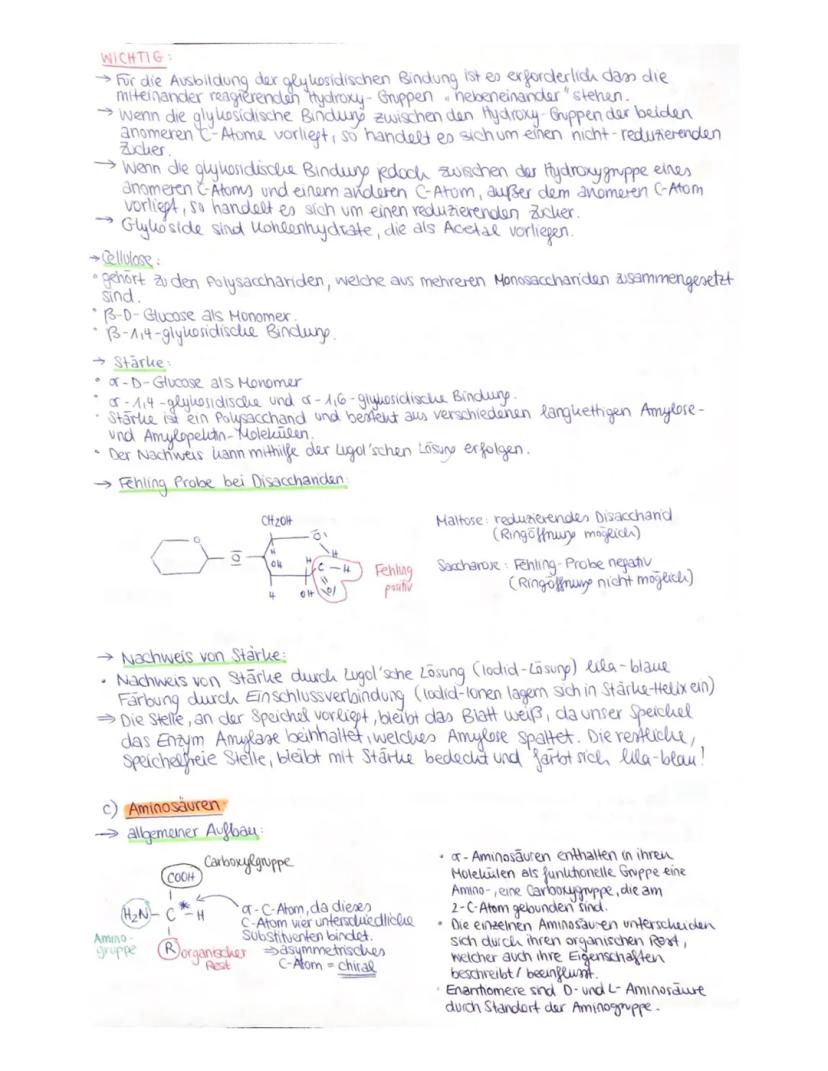 WICHTIG:
→ Für die Ausbildung der glykosidischen Bindung ist es erforderlich dass die
miteinander reagierenden Hydroxy-Gruppen "nebeneinander" stehen.
→ Wenn die glykosidische Bindung zwischen den Hydroxy-Gruppen der beiden
anomeren C-Atome vorliegt, so handelt es sich um einen nicht-reduzierenden
Zucker.
→ Wenn die glykosidische Bindung jedoch zwischen der Hydroxygruppe eines
anomeren C-Atoms und einem anderen C-Atom, außer dem anomeren C-Atom
vorliegt, so handelt es sich um einen reduzierenden Zucker.
→ Glykoside sind Kohlenhydrate, die als Acetal vorliegen.
→ Cellulose:
• gehört zu den Polysacchariden, welche aus mehreren Monosacchariden zusammengesetzt
sind.
• β-D-Glucose als Monomer.
• β-1,4-glykosidische Bindung.
→ Stärke:
• α-D-Glucose als Monomer
• α-1,4-glykosidische und α-1,6-glykosidische Bindung.
• Stärke ist ein Polysaccharid und besteht aus verschiedenen langkettigen Amylose-
und Amylopektin-Molekülen.
• Der Nachweis kann mithilfe der Lugol'schen Lösung erfolgen.
→ Fehling Probe bei Disacchariden:
CH2OH
O
O
O
H
OH
H
C - H
H
OH
O
H
Fehling
positiv
Maltose: reduzierendes Disaccharid
(Ringöffnung möglich)
Saccharose: Fehling-Probe negativ
(Ringöffnung nicht möglich)
→ Nachweis von Stärke:
• Nachweis von Stärke durch Lugol'sche Lösung (Iodid-Lösung) lila-blaue
Färbung durch Einschlussverbindung (Iodid-Ionen lagern sich in Stärke-Helix ein)
⇒ Die Stelle, an der Speichel vorliegt, bleibt das Blatt weiß, da unser Speichel
das Enzym Amylase beinhaltet, welches Amylose spaltet. Die restliche,
speichelfreie Stelle, bleibt mit Stärke bedeckt und färbt sich lila-blau!
c) Aminosäuren
→ allgemeiner Aufbau:
Carboxylgruppe
COOH
H2N - C* - H
Amino-
gruppe
R organischer
Rest
α-C-Atom, da dieses
C-Atom vier unterschiedliche
Substituenten bindet.
⇒ asymmetrisches
C-Atom = chiral
• α-Aminosäuren enthalten in ihren
Molekülen als funktionelle Gruppe eine
Amino-, eine Carboxygruppe, die am
2-C-Atom gebunden sind.
• Die einzelnen Aminosäuren unterscheiden
sich durch ihren organischen Rest,
welcher auch ihre Eigenschaften
beschreibt / beeinflusst.
• Enantiomere sind D- und L-Aminosäure
durch Standort der Aminogruppe.